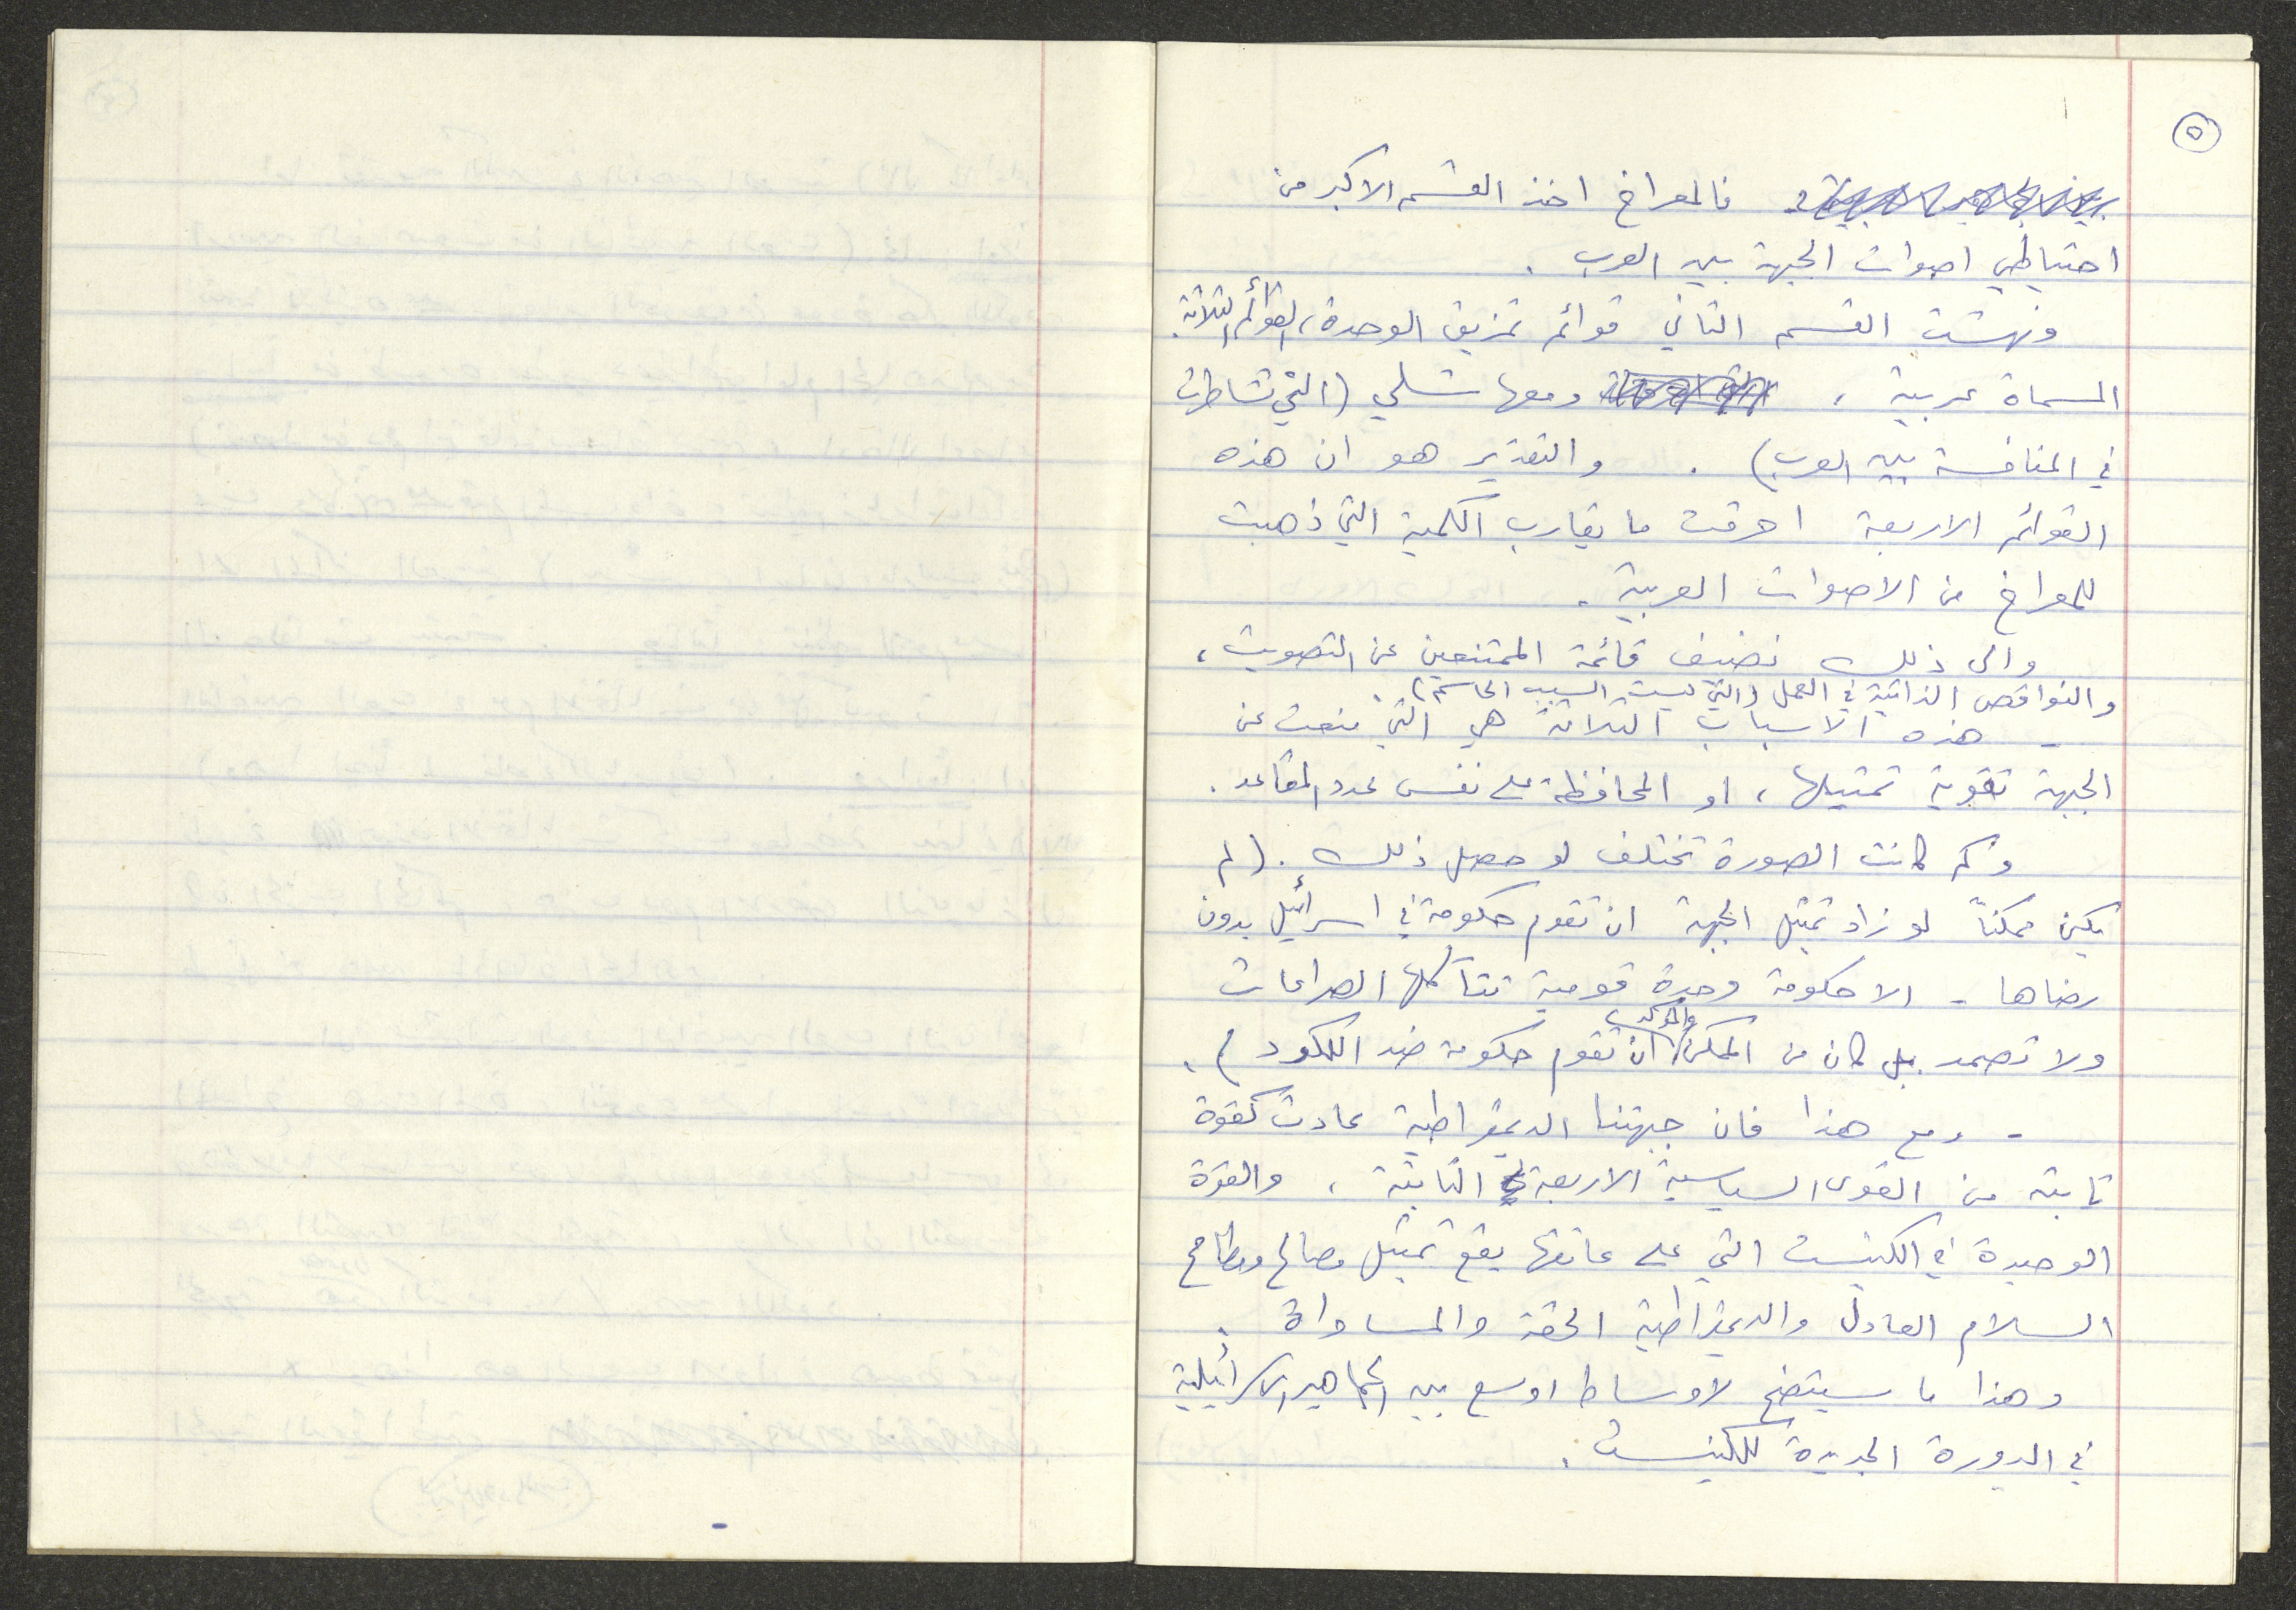 ٥
فالمعراخ اخذ القسم الاكبر من
احتياطي اصوات الجبهة بين العرب .
ونهشت القسم الثاني قوائم تمزيق الوحدة، القوائم الثلاثة
المسماة عربية ، ومعها شلي (التي تشاطرت
في المنافسة بين العرب) . والتقدير هو ان هذه
القوائم الاربعة احرقت ما يقارب الكمية التي ذهبت
للمعراخ من الاصوات العربية .
والى ذلك نضيف قائمة الممتنعين عن التصويت ،
والنواقص الذاتية في العمل (والتي ليست السبب الحاسم) .
- هذه الاسباب الثلاثة هي التي منعت عن
الجبهة تقوية تمثيلها ، او المحافظة على نفس عدد المقاعد .
وكم كانت الصورة تختلف لو حصل ذلك . (لم
يكن ممكناً لو زاد تمثيل الجبهة ان تقوم حكومة في اسرائيل بدون
رضاها - الا حكومة وحدة قومية تتآكلها الصراعات
ولا تصمد . بل كان من الممكن والمؤكد ان تقوم حكومة ضد الليكود ) .
- ومع هذا فان جبهتنا الديمقراطية عادت كقوة
ثابتة من القوى السياسية الاربعة الثابتة ، والقوة
الوحيدة في الكنيست التي على عاتقها يقع تمثيل مصالح ومطامح
السلام العادل والديمقراطية الحقة والمساواة .
وهذا ما سيتضح لاوساط اوسع بين الجماهير الاسرائيلية
في الدورة الجديدة للكنيست .